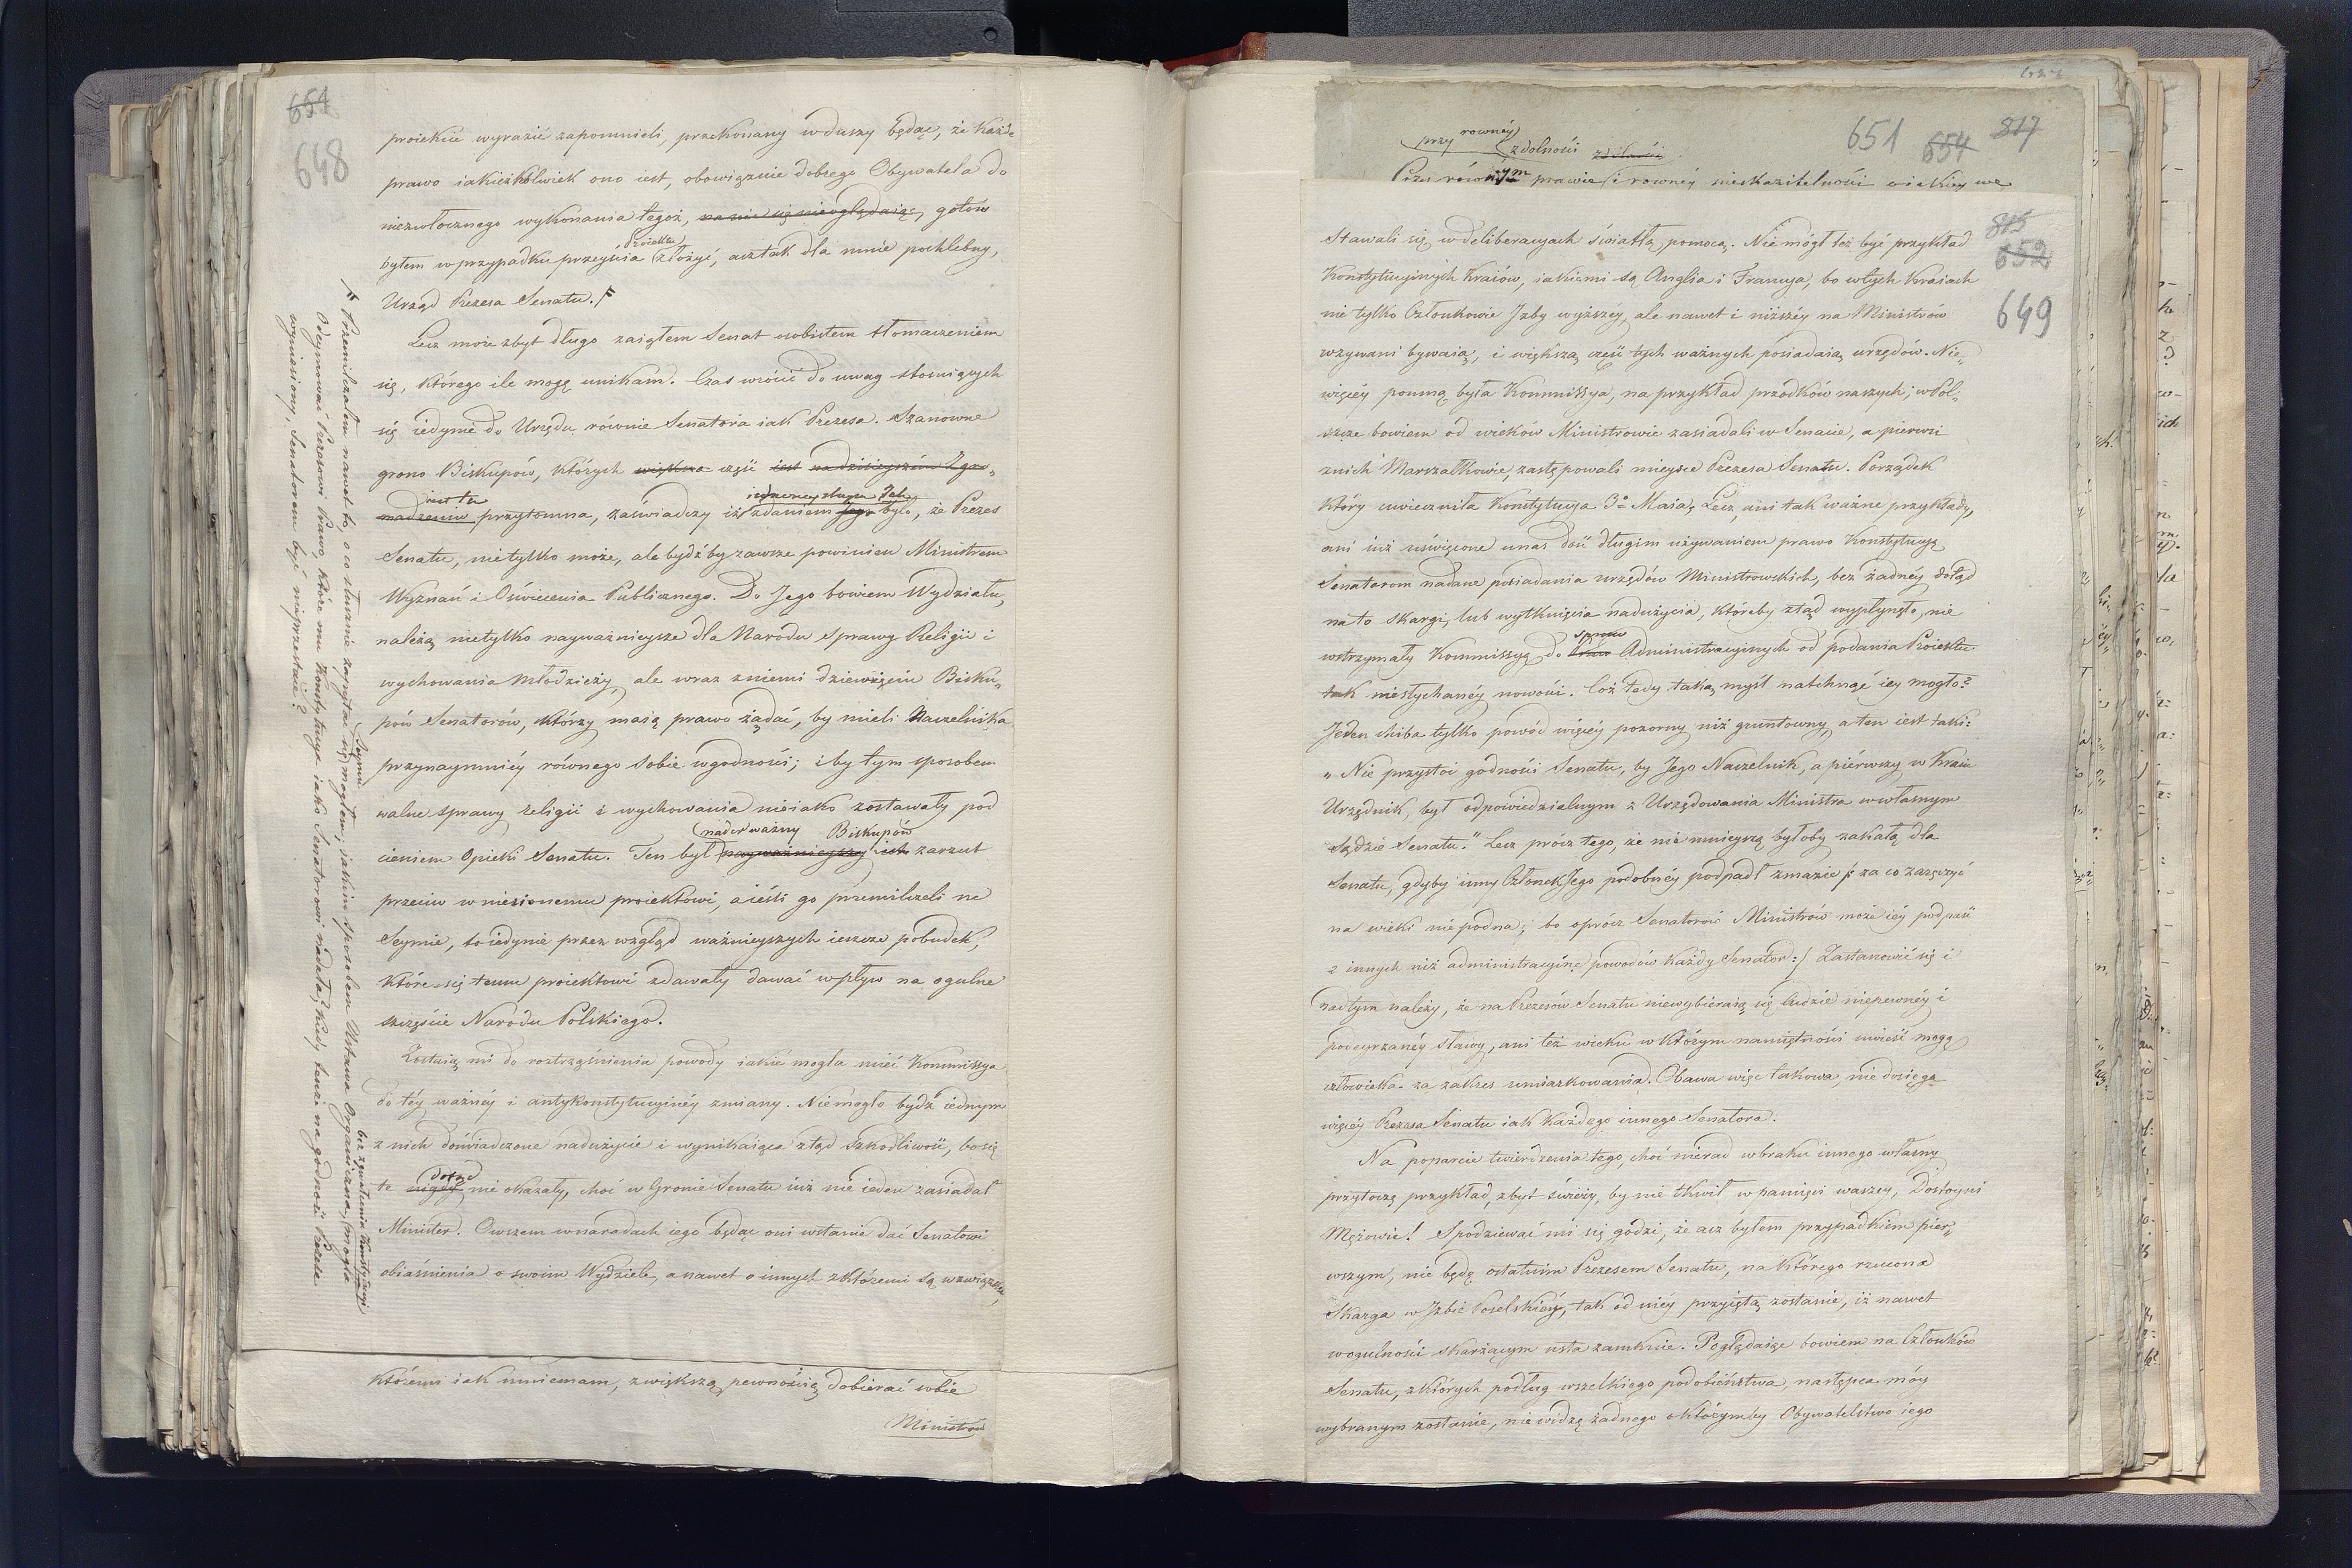 651
648
proiekcie wyrazić zapomnieli, przekonany w duszy będąc, że każde
prawo iakieżkolwiek ono iest, obowiązuie dobrego Obywatela do
niezwłocznego wykonania tegoż, na nic się nieoglądaiąc, gotow
Proiektu
byłem w przypadku przeyścia złożyć, acz tak dla mnie pochlebny,
Urząd Prezesa Senatu. F
Lecz może zbyt długo zaiąłem Senat osobistem tłomaczeniem
się, którego ile mogę unikam. Czas wrócić do uwag stosuiących
się iedynie do Urzędu równie Senatora iak Prezesa. Szanowne
grono Biskupów, których większa część iest na dzisieyszém Zgro„
iest tu
iednomyślnem Ich
madzeniu przytomna, zaświadczy iż zdaniem Jego było, że Prezes
Senatu, nietylko może, ale bydź by zawsze powinien Ministrem
Wyznań i Oświecenia Publicznego. Do Jego bowiem Wydziału,
należą nietylko nayważnieysze dla Narodu sprawy Religii i
wychowania Młodzieży, ale wraz z niemi dziewięciu Bisku„
pów Senatorów, którzy maią prawo żądać, by mieli Naczelnika
przynaymniéy równego sobie w godności; i by tym sposobem
walne sprawy religii i wychowania nieiako zostawały pod
nader ważny Biskupów
cieniem Opieki Senatu. Ten był nayważnieyszy ich zarzut
przeciw wniesionemu proiektowi, a ieśli go przemilczeli na
Seymie, to iedynie przez wzgląd ważnieyszych ieszcze pobudek,
które się temu proiektowi zdawały dawać wpływ na ogulne
szczęście Narodu Polskiego.
Zostaią mi do roztrząśnienia powody iakie mogła mieć Kommissya
do téy ważnéy i antykonstytucyinéy zmiany. Nie mogło bydź iednym
z nich doświadczone nadużycie i wynikaiąca ztąd szkodliwość, bo się
dotąd
te nigdy nie okazały, choć w Gronie Senatu iuż nie ieden zasiadał
Minister. Owszem w naradach iego będąc oni wstanie dać Senatowi
obiaśnienia o swoim Wydziele, a nawet o innych z któremi są w związku,
któremi iak mniemam, z większą pewnością dobierać sobie
Ministrów
F Przemilczałem nawet to, o co słusznie zapytać się mogłem, iakim sposobem Ustawa Organiczna, mogła
Seymu
bez zgwałcenia Konstytucyi
Odeymować Prezesowi Prawo, które mu Konstytucya iako Senatorowi nadała; kiedy tenże na godność Prezesa
wyniesiony, Senatorem być nieprzestaie?
651 654 817
przy rownéy zdolności zdolności
Przy równym prawie i rowney nieskazitelności
815
652
649
stawali się w deliberacyach światłą pomocą. Nie mógł też być przykład
Konstytucyinych Kraiów, iakiemi są Anglia i Francya, bo w tych Kraiach
nie tylko Członkowie Izby wyższéy, ale nawet i niższéy na Ministrów
wzywani bywaią, i większą część tych ważnych posiadaią urzędów. Nie„
więcéy pomną była Kommissya, na przykład przodków naszych; w Pol„
szcze bowiem od wieków Ministrowie zasiadali w Senacie, a pierwsi
z nich Marszałkowie, zastępowali mieysce Prezesa Senatu. Porządek
który uwieczniła Konstytucya 3º Maia, Lecz, ani tak ważne przykłady,
ani iuż uświęcone u nas dość długim używaniem prawo Konstytucyą
Senatorom nadane posiadania urzędów Ministrowskich, bez żadnéy dotąd
na to skargi, lub wytknięcia nadużycia, któreby ztąd wypłynęło, nie
spraw
wstrzymały Kommissyą do Administracyinych od podania Proiektu
tak niesłychanéy nowości. Coż tedy taką myśl natchnąć iey mogło?
Jeden chiba tylko powód więcéy pozorny niż gruntowny, a ten iest taki:
„ Nie przystoi godności Senatu, by Jego Naczelnik, a piérwszy w Kraiu
Urzędnik, był odpowiedzialnym z Urzędowania Ministra w własnym
Sądzie Senatu." Lecz prócz tego, że nie mnieyszą byłoby zakałą dla
Senatu, gdyby inny Członek Jego podobnéy podpadł zmazie /: za co zaręczyć
na wieki niepodna; bo oprócz Senatorów Ministrów może iéy podpaść
z innych niż administracyine powodów każdy Senator :/ Zastanowić się i
nadtym należy, że na Prezesów Senatu niewybieraią się ludzie niepewnéy i
podeyrzanéy sławy, ani też wieku w którym namiętności unieść mogą
człowieka za zakres umiarkowania. Obawa więc takowa, nie dosięga
więcéy Prezesa Senatu iak każdego innego Senatora.
Na poparcie twierdzenia tego, choć nierad w braku innego własny
przytoczę przykład, zbyt świeży, by nie tkwił w pamięci waszey, Dostoyni
Mężowie! Spodziewać mi się godzi, że acz byłem przypadkiem pier„
wszym, nie będę ostatnim Prezesem Senatu, na którego rzucona
Skarga w Izbie Poselskiéy, tak od niéy przyiętą zostanie, iż nawet
w ogulności skarżącym usta zamknie. Poglądaiąc bowiem na Członków
Senatu, z których podług wszelkiego podobieństwa, następca móy
wybranym zostanie, nie widzę żadnego o którymby Obywatelstwo iego